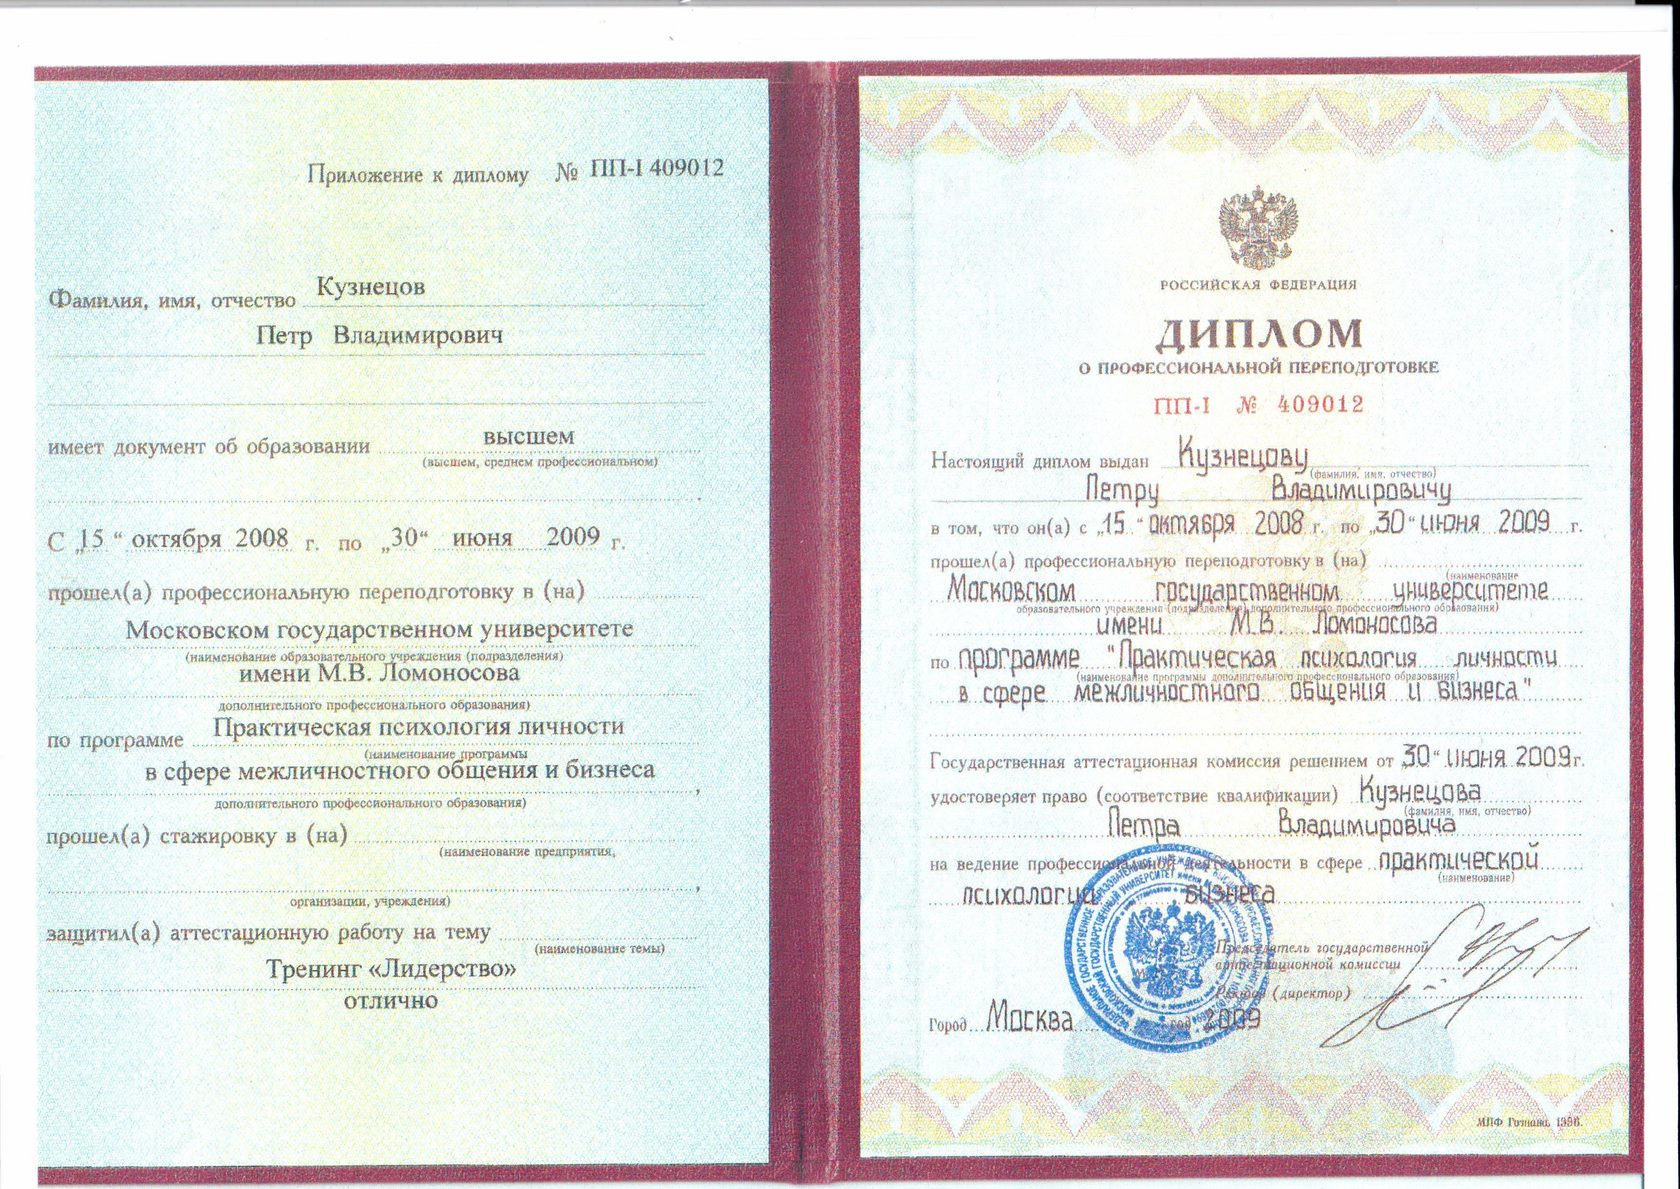 Приложение к диплому № ПП-I 409012
Фамилия, имя, отчество Кузнецов
Петр Владимирович
имеет документ об образовании высшем
(высшем, среднем профессиональном)
С „15“ октября 2008 г. по „30“ июня 2009 г.
прошел(а) профессиональную переподготовку в (на)
Московском государственном университете
(наименование образовательного учреждения (подразделения)
имени М.В. Ломоносова
дополнительного профессионального образования)
по программе Практическая психология личности
(наименование программы
в сфере межличностного общения и бизнеса ,
дополнительного профессионального образования)
прошел(а) стажировку в (на)
(наименование предприятия,
,
организации, учреждения)
защитил(а) аттестационную работу на тему
(наименование темы)
Тренинг «Лидерство»
отлично
РОССИЙСКАЯ ФЕДЕРАЦИЯ
ДИПЛОМ
О ПРОФЕССИОНАЛЬНОЙ ПЕРЕПОДГОТОВКЕ
ПП-I № 409012
Настоящий диплом выдан Кузнецову
(фамилия, имя, отчество)
Петру Владимировичу
в том, что он(а) с „15“ октября 2008 г. по „30“ июня 2009 г.
прошел(а) профессиональную переподготовку в (на)
(наименование
Московском государственном университете
образовательного учреждения (подразделения) дополнительного профессионального образования)
имени М.В. Ломоносова
по программе "Практическая психология личности
(наименование программы дополнительного профессионального образования)
в сфере межличностного общения и бизнеса"
Государственная аттестационная комиссия решением от 30“ июня 2009г.
удостоверяет право (соответствие квалификации) Кузнецова
(фамилия, имя, отчество)
Петра Владимировича
на ведение профессиональной деятельности в сфере практической
(наименование)
психологии бизнеса
Председатель государственной
аттестационной комиссии
Ректор (директор)
Город Москва год 2009
МПФ Гознака. 1996.